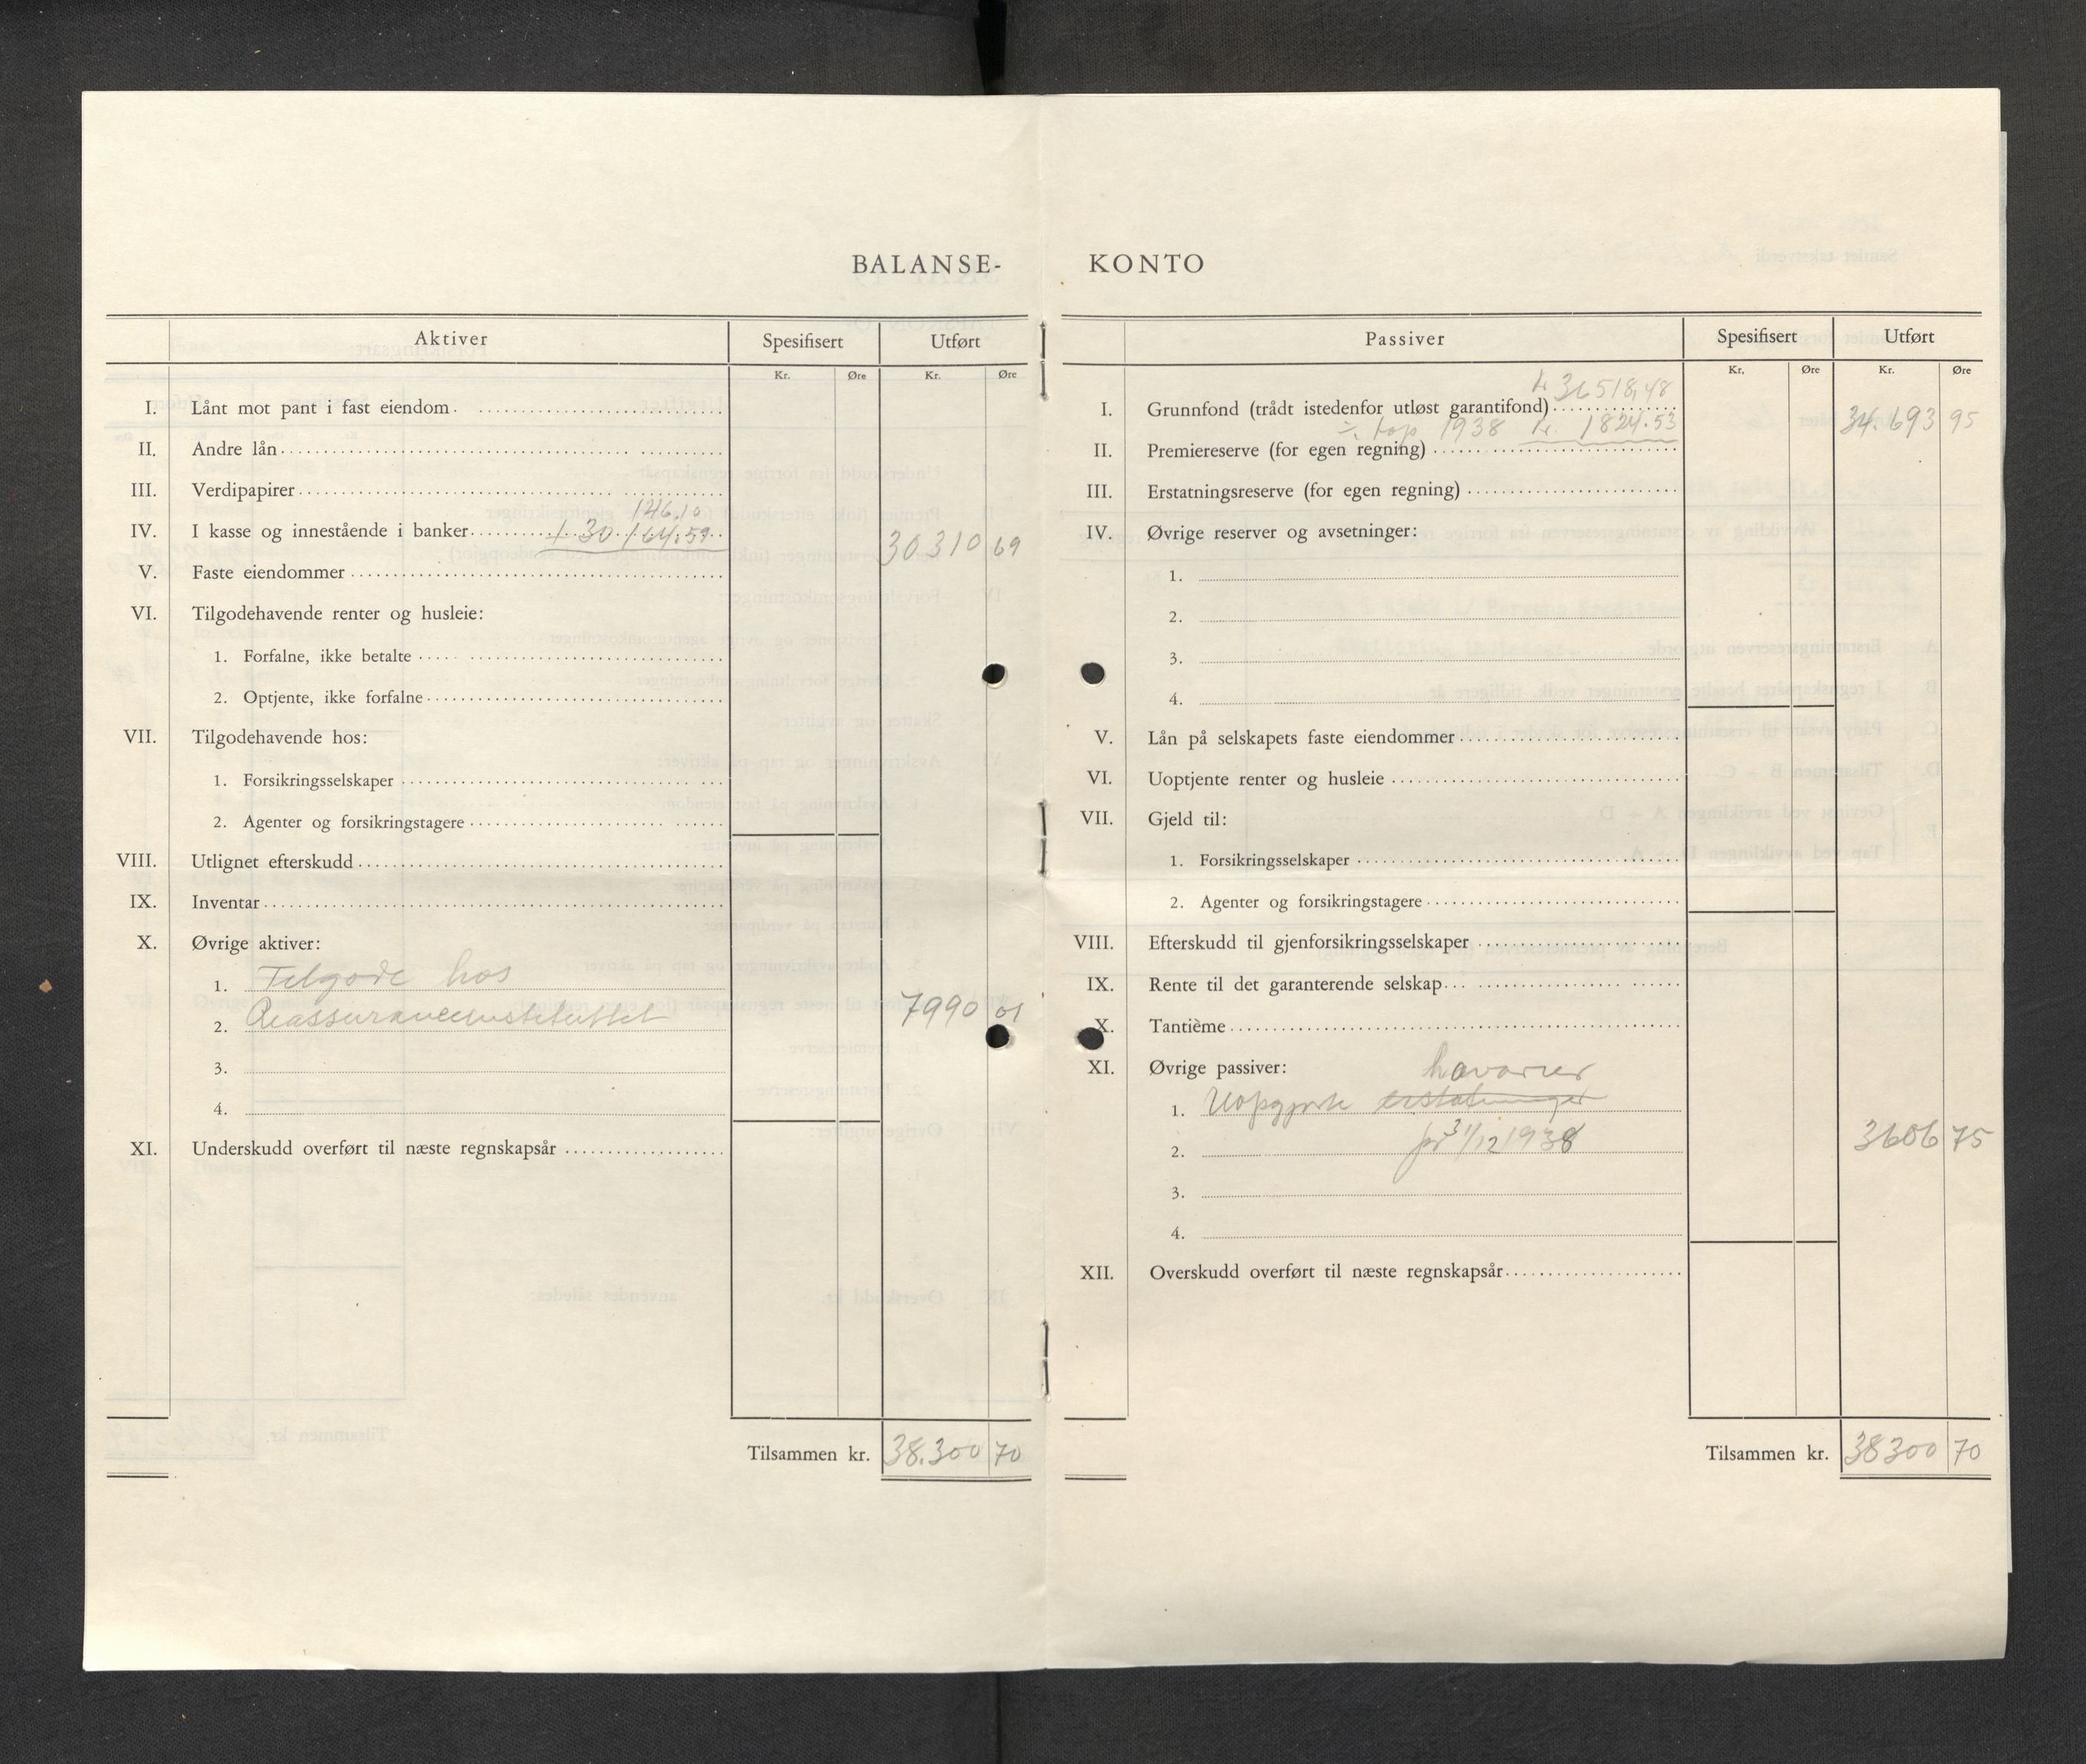 BALANSE-
Aktiver Spesifisert Utført
Kr. Øre Kr. Øre
I. Lånt mot pant i fast eiendom
II. Andre lån
III. Verdipapirer
146.10
IV. I kasse og innestående i banker + 30.164.59 30310 69
V. Faste eiendommer
VI. Tilgodehavende renter og husleie:
1. Forfalne, ikke betalte
2. Optjente, ikke forfalne
VII. Tilgodehavende hos:
1. Forsikringsselskaper
2. Agenter og forsikringstagere
VIII. Utlignet efterskudd
IX. Inventar
X. Øvrige aktiver:
1. Tilgode hos
2. Reassuranceinstituttet 7990 01
3.
4.
XI. Underskudd overført til næste regnskapsår
Tilsammen kr. 38.300 70
KONTO
Passiver Spesifisert Utført
Kr. Øre Kr. Øre
kr 36518,48
I. Grunnfond (trådt istedenfor utløst garantifond) 34.693 95
÷ tap 1938 kr. 1824.53
II. Premiereserve (for egen regning)
III. Erstatningsreserve (for egen regning)
IV. Øvrige reserver og avsetninger:
1.
2.
3.
4.
V. Lån på selskapets faste eiendommer
VI. Uoptjente renter og husleie
VII. Gjeld til:
1. Forsikringsselskaper
2. Agenter og forsikringstagere
VIII. Efterskudd til gjenforsikringsselskaper
IX. Rente til det garanterende selskap
X. Tantième
XI. Øvrige passiver: havarier
1. Uopgjorte erstatninger
2. pr 31/12 1938 3606 75
3.
4.
XII. Overskudd overført til næste regnskapsår
Tilsammen kr. 38300 70